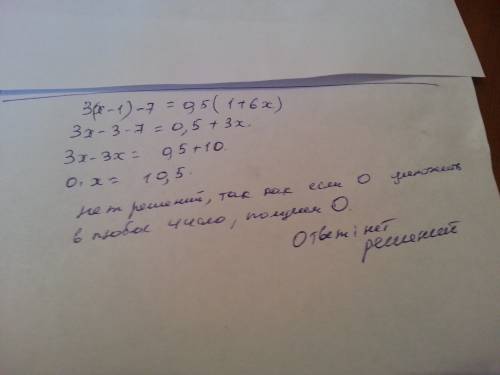 3(x-1)-7 = 0,5(1+6x)
3x-3-7=0,5+3x.
3x-3x= 0,5+10.
0·x= 10,5.
нет решений, так как если 0 умножить
в любое число, получим 0.
Ответ: нет
решений